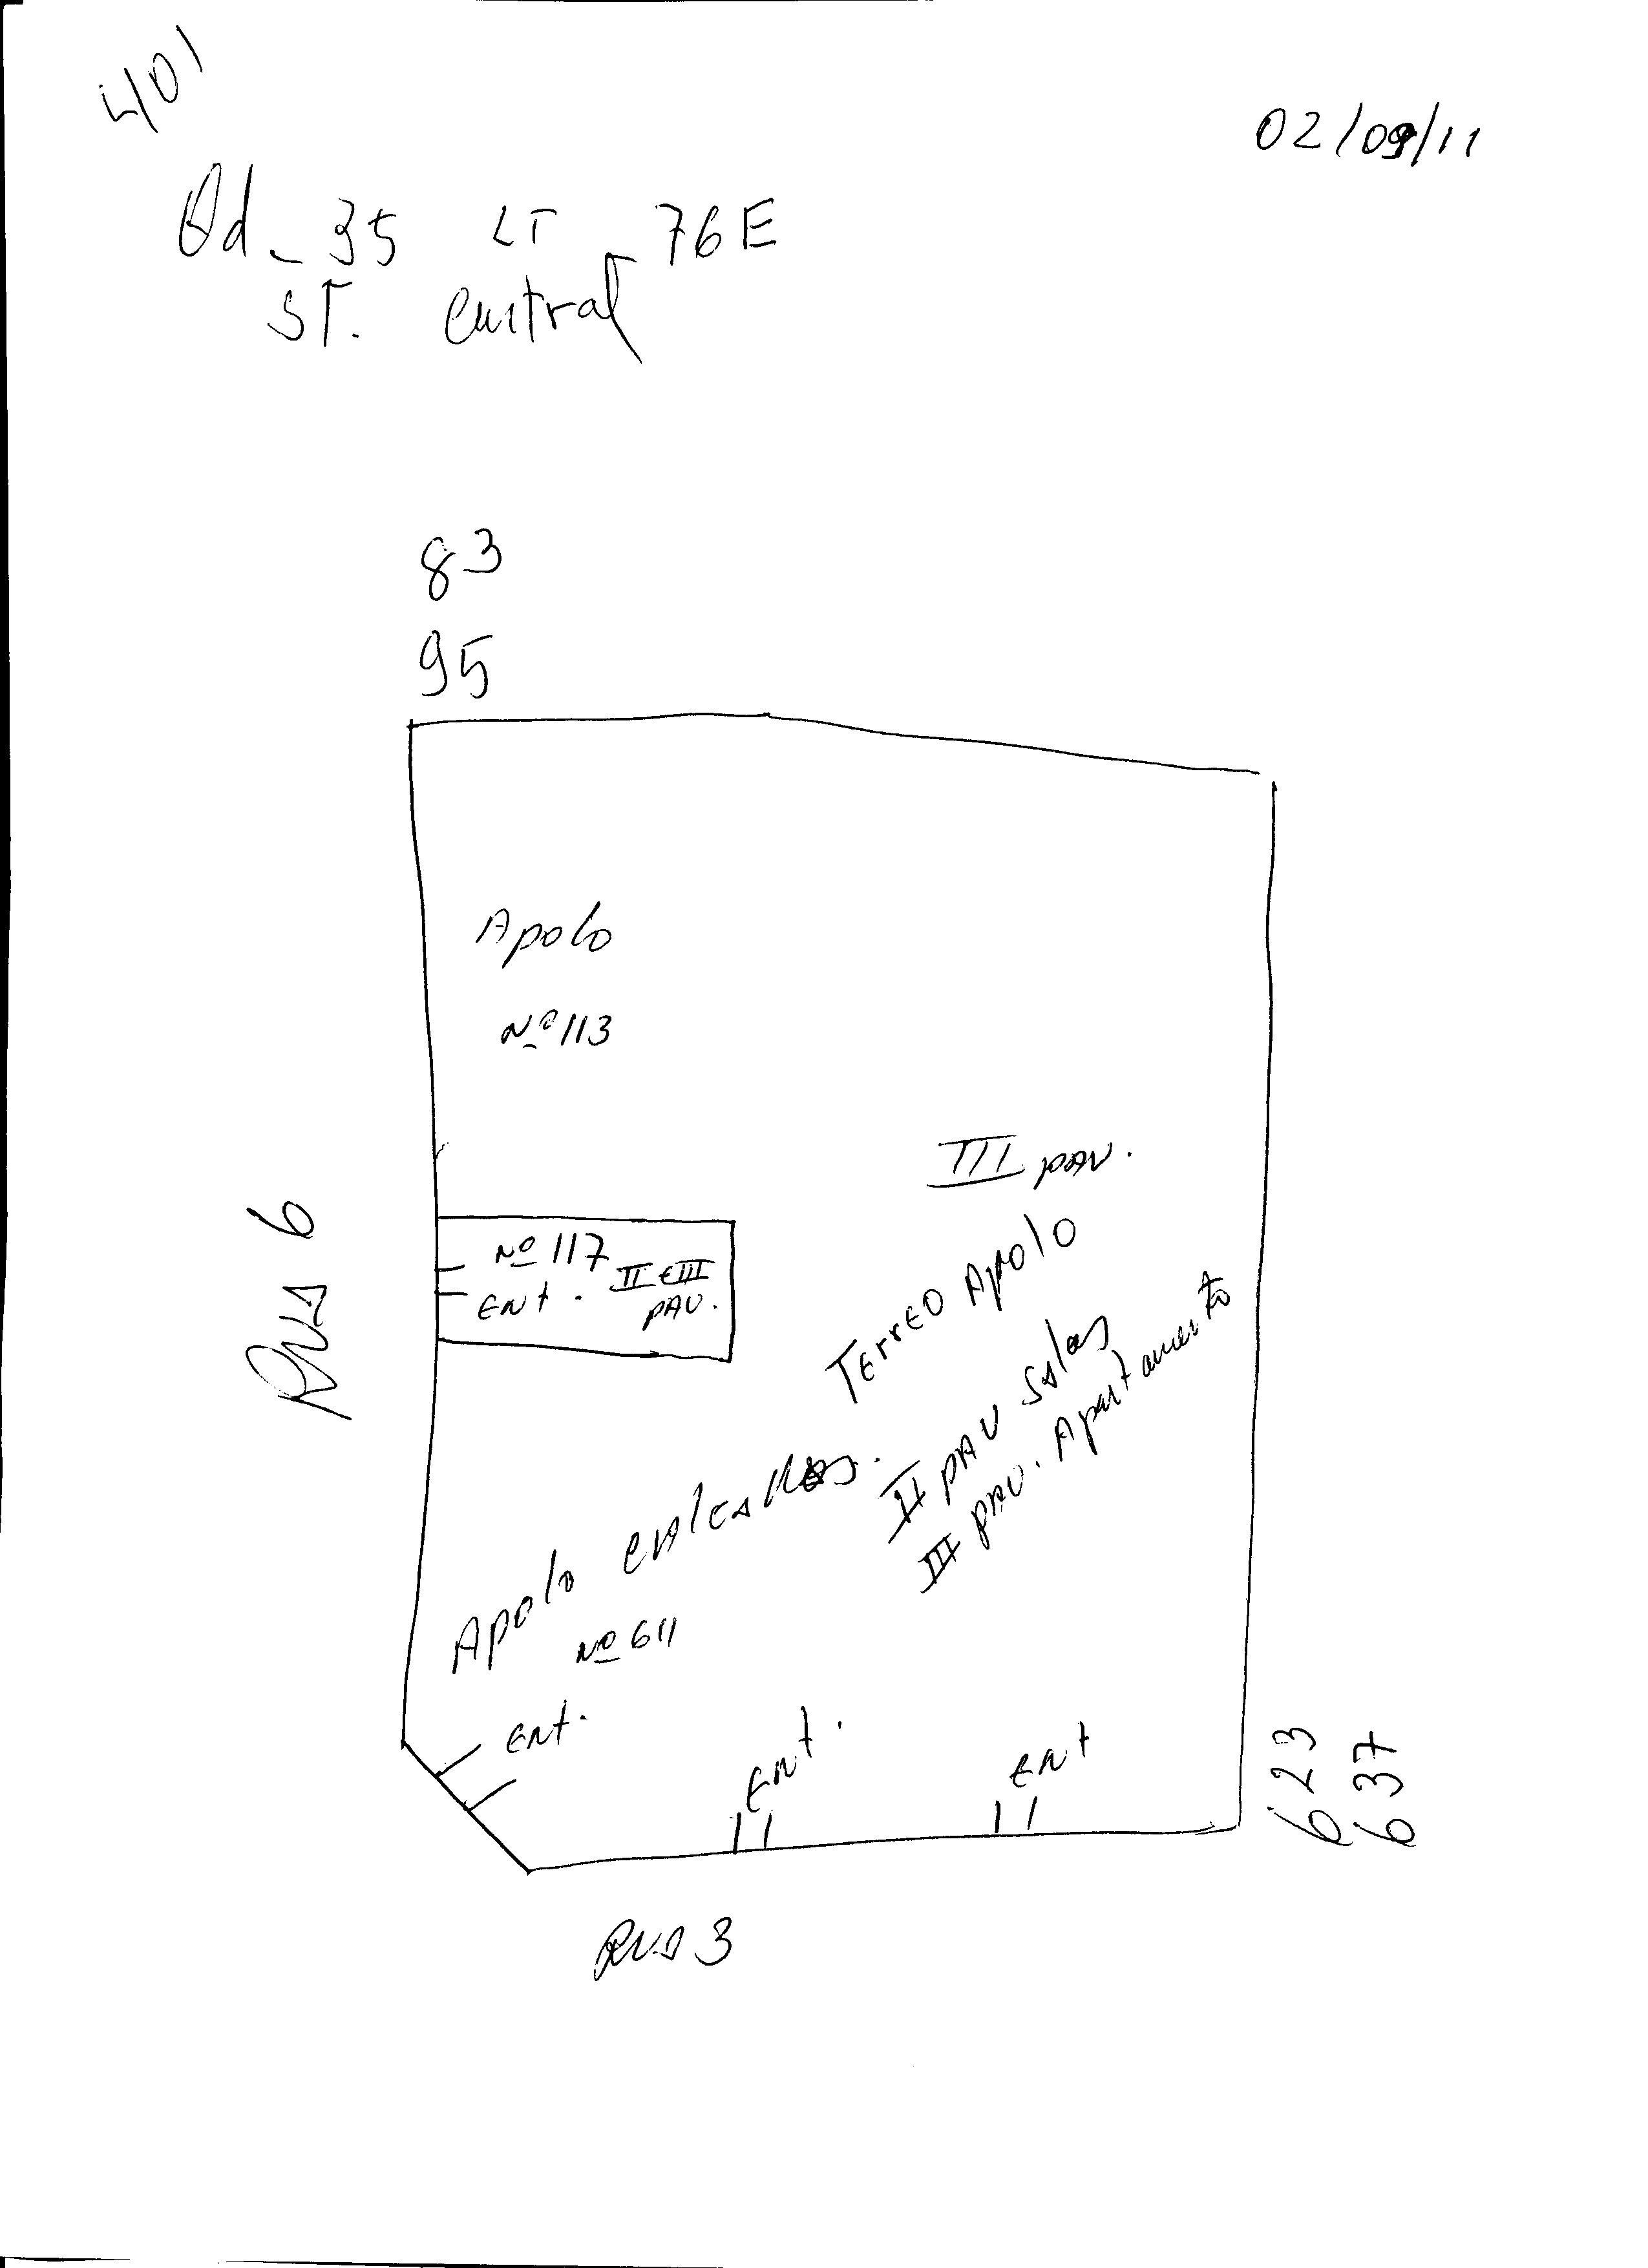 4101
02/09/11
Qd - 35 LT 76E
ST. Central
83
95
Apolo
Nº 113
III PAV.
Nº 117
Ent. II e III
PAV.
Rua 6
Terreo Apolo
II PAV Salas
III PAV. Apartamento
Apolo
Nº 611
Ent.
Ent.
Ent
623
637
Rua 3